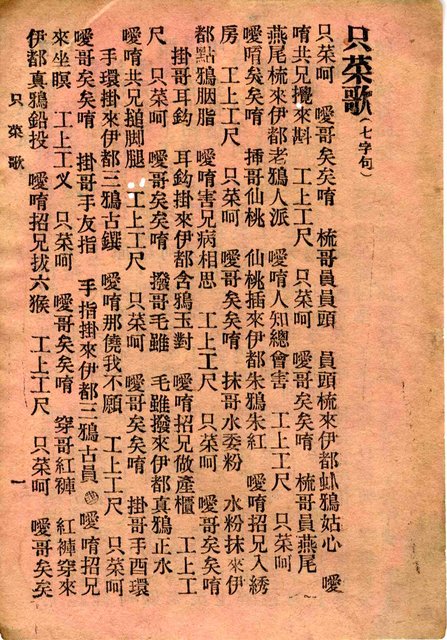 只菜歌（七字句）
只菜呵　噯哥矣矣唷　梳哥員員頭　員頭梳來伊都虬鴉姑心　噯
唷共兄攪來斟　工上工尺　只菜呵　噯哥矣矣唷　梳哥員燕尾
燕尾梳來伊都老鴉人派　噯唷人知總會害　工上工尺　只菜呵
噯唷矣矣唷　揷哥仙桃　仙桃插來伊都朱鴉朱紅　噯唷招兄入綉
房　工上工尺　只菜呵　噯哥矣矣唷　抹哥水委粉　水粉抹來伊
都點鴉胭脂　噯唷害兄病相思　工上工尺　只菜呵　噯哥矣矣唷
掛哥耳鈎　耳鈎掛來伊都含鴉玉對　噯唷招兄做產櫃　工上工
尺　只菜呵　噯哥矣矣唷　撥哥毛雖　毛雖撥來伊都真鴉正水
噯唷共兄搥脚腿　工上工尺　只菜呵　噯哥矣矣唷　掛哥手酉環
手環掛來伊都三鴉古鐉　噯唷那僥我不願　工上工尺　只菜呵
噯哥矣矣唷　掛哥手友指　手指掛來伊都三鴉古員　噯唷招兄
來坐瞑　工上工乂　只菜呵　噯哥矣矣唷　穿哥紅褲　紅褲穿來
伊都真鴉鉛投　噯唷招兄拔六猴　工上工尺　只菜呵　噯哥矣矣
只菜歌
一